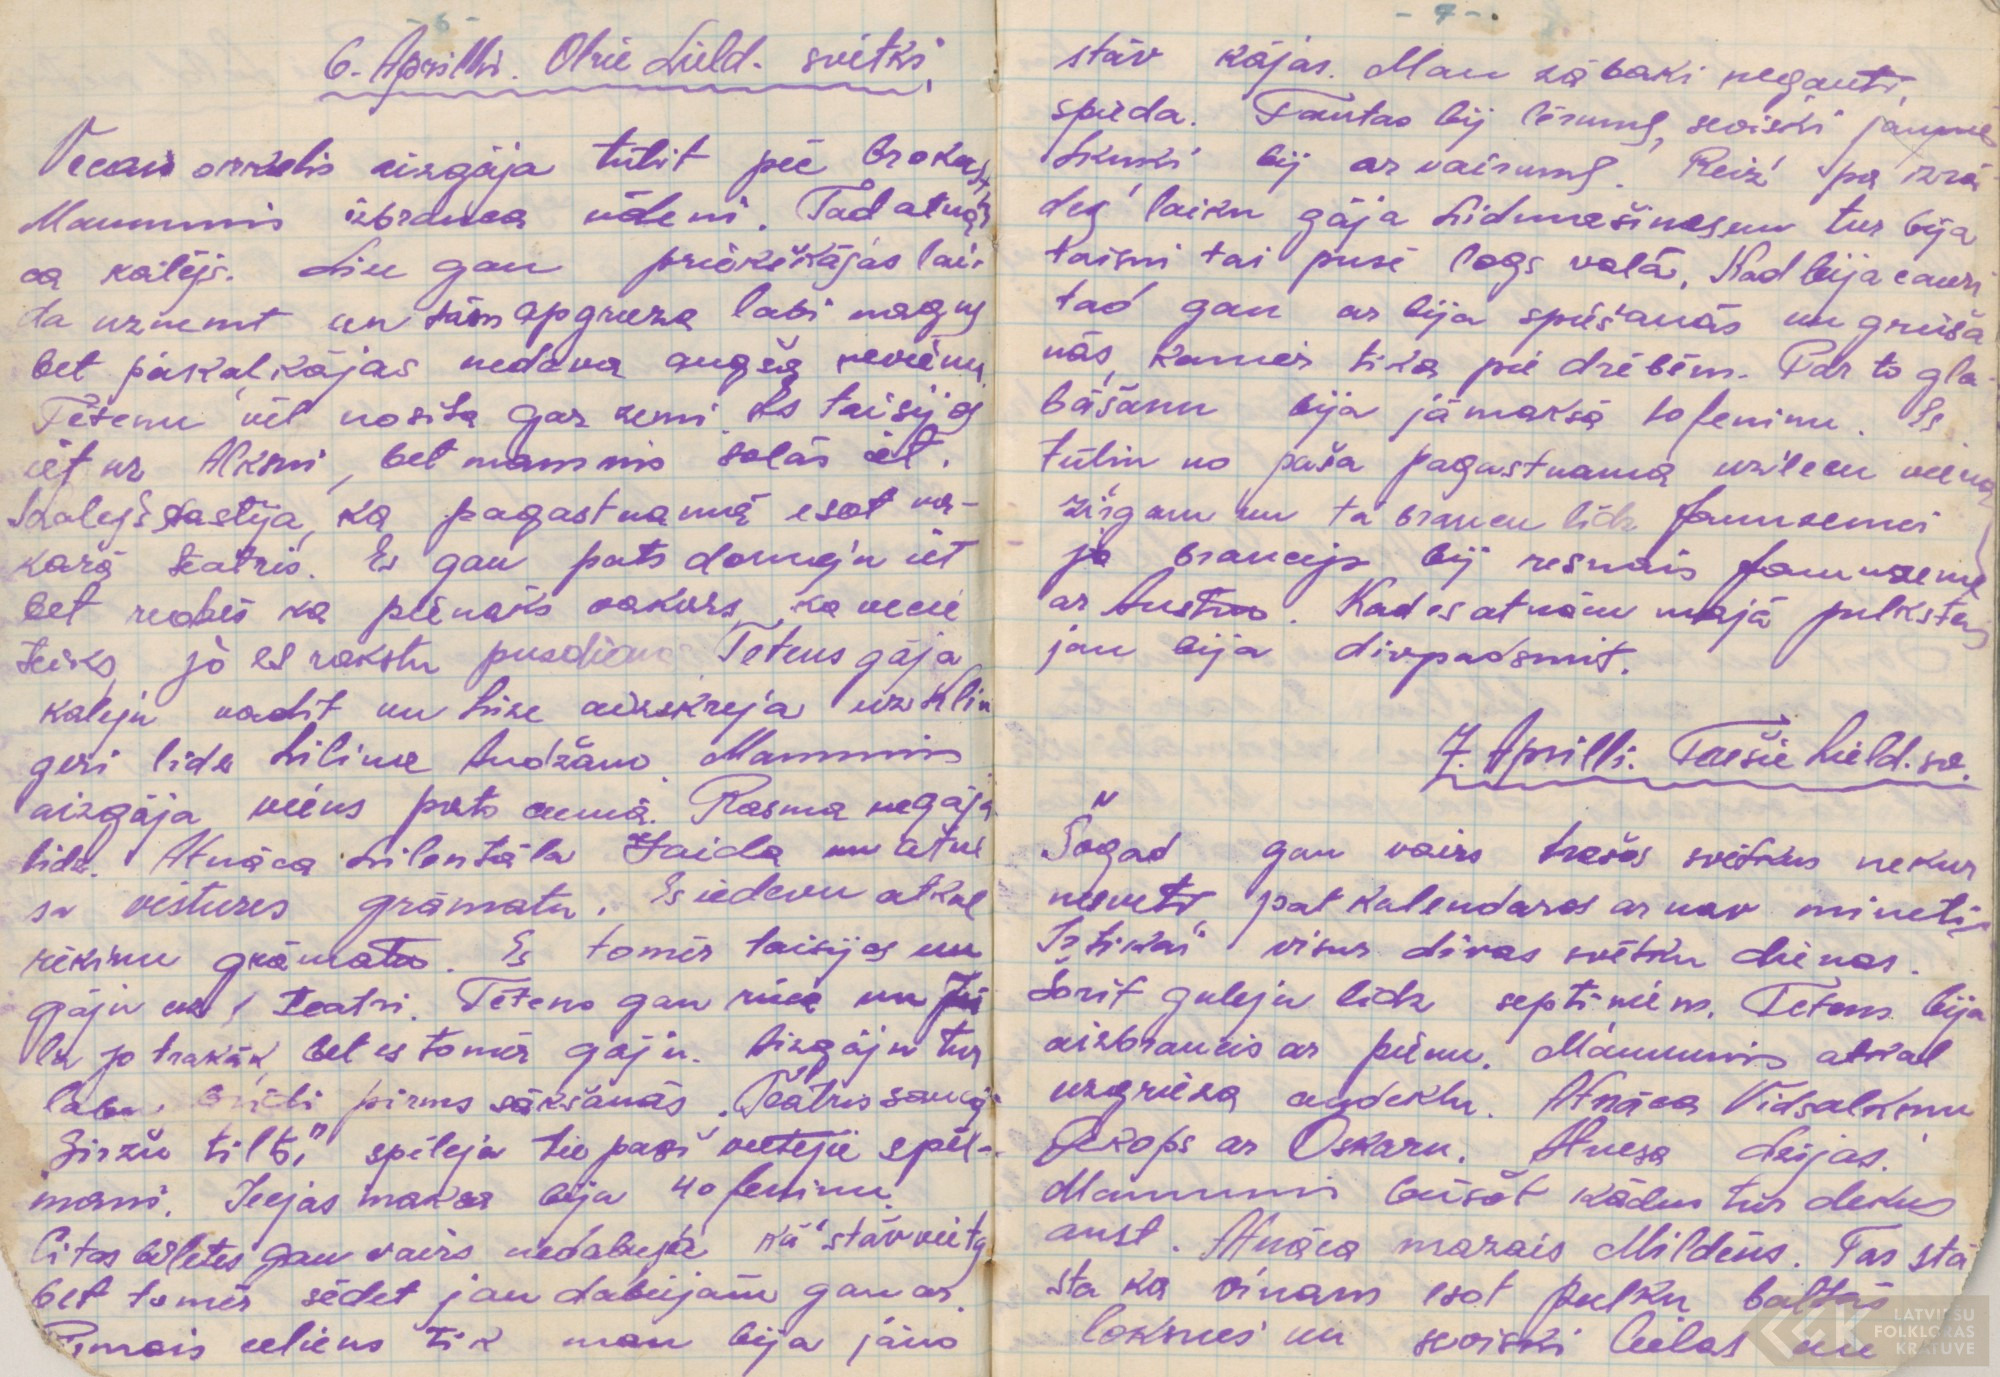 - 6 -
6. Aprillī. Otrie Lield. svētki.
Vecais onkelis aizgāja tūlit pēc brokast
Mammīns izbrauca ūdeni. Tad atnā-
ca kalējs. Lieu gan priekškājas lai-
da uzņemt un tām apgrieza labi nagus
bet pakaļkājas nedeva augšā nevienu
Tētenu vēl nosita gar zemi. Es taisijos
iet uz Alksni, bet mammīns solās iet.
Kalejs stastija, ka pagastnamā esot va-
karā teatris. Es gan pats domāju iet
bet redzēs ka pienāks vakars, ka vecie
teiks, jo es rakstu pusdienā. Tetens gāja
kaleju vadit un Lize aizskreja uz Klin
geri lidz Liline Audžam. Mammīns
aizgāja viens pats ciemā. Rasma negāja
lidz. Atnāca Lilentāla Zaida un atne
sa vēstures grāmatu. Es iedevu atkal
rēķinu grāmatu. Es tomēr taisijos un
gāju uz teatri. Tētens gan rūca un
jo trakāk, bet es tomēr gāju. Aizgāju tur
labu brīdi pirms sākšanās. Teātris saucās
"Ziržu tilts," spēleja tie paši vietejie spēl-
mani. Ieejas maksa bija 40 feniņu.
Citas biļetes gan vairs nedabuja kā stāvvietą
bet tomēr sēdet jau dabūjām gan ar.
Pirmais celiens tik man bija jāno
- 7 -
stāv kājas. Man zābaki neganti
spieda. Tautas bij lērums, seviski jaunie
skuķi bij ar vairums. Reiz pa izrā-
des laiku gāja lidmašinas un tur bija
taisni tai pusē logs vaļā. Kad bija cauri
tad gan ar bija spiešanās un grūšа
nās, kamēr tika pie drēbēm. Par to gla-
bāšanu bija jāmaksā 10 feniņu. Es
tūlin no paša pagastnama uzlecu viena
zirgam un ta braucu lidz Jaunzemei
jo braucējs bij resnais Jaunzeme
ar Austru. Kad es atnācu majā pulkstens
jau bija divpadsmit.
7. Aprillī. Trešie Lield. sv.
Šogad gan vairs trešos svētkus nekur
nesvetī, pat kalendaros ar nav mineti.
Ir tikai visur divas svētku dienas.
Šorit guleju lidz septiņiem. Tetens bija
aizbraucis ar pienu. Mammīns atkal
uzgrieza audeklu. Atnāca Vidsalksnu
Jekops ar Oskaru. Atnesa dzijas.
Mammīni būšot kādus tur dekus
aust. Atnāca mazais Mildēns. Tas stā
sta ka viņam esot pulku baltās
loksnes un seviski lielas un
LATVIEŠU
FOLKLORAS
KRĀTUVE